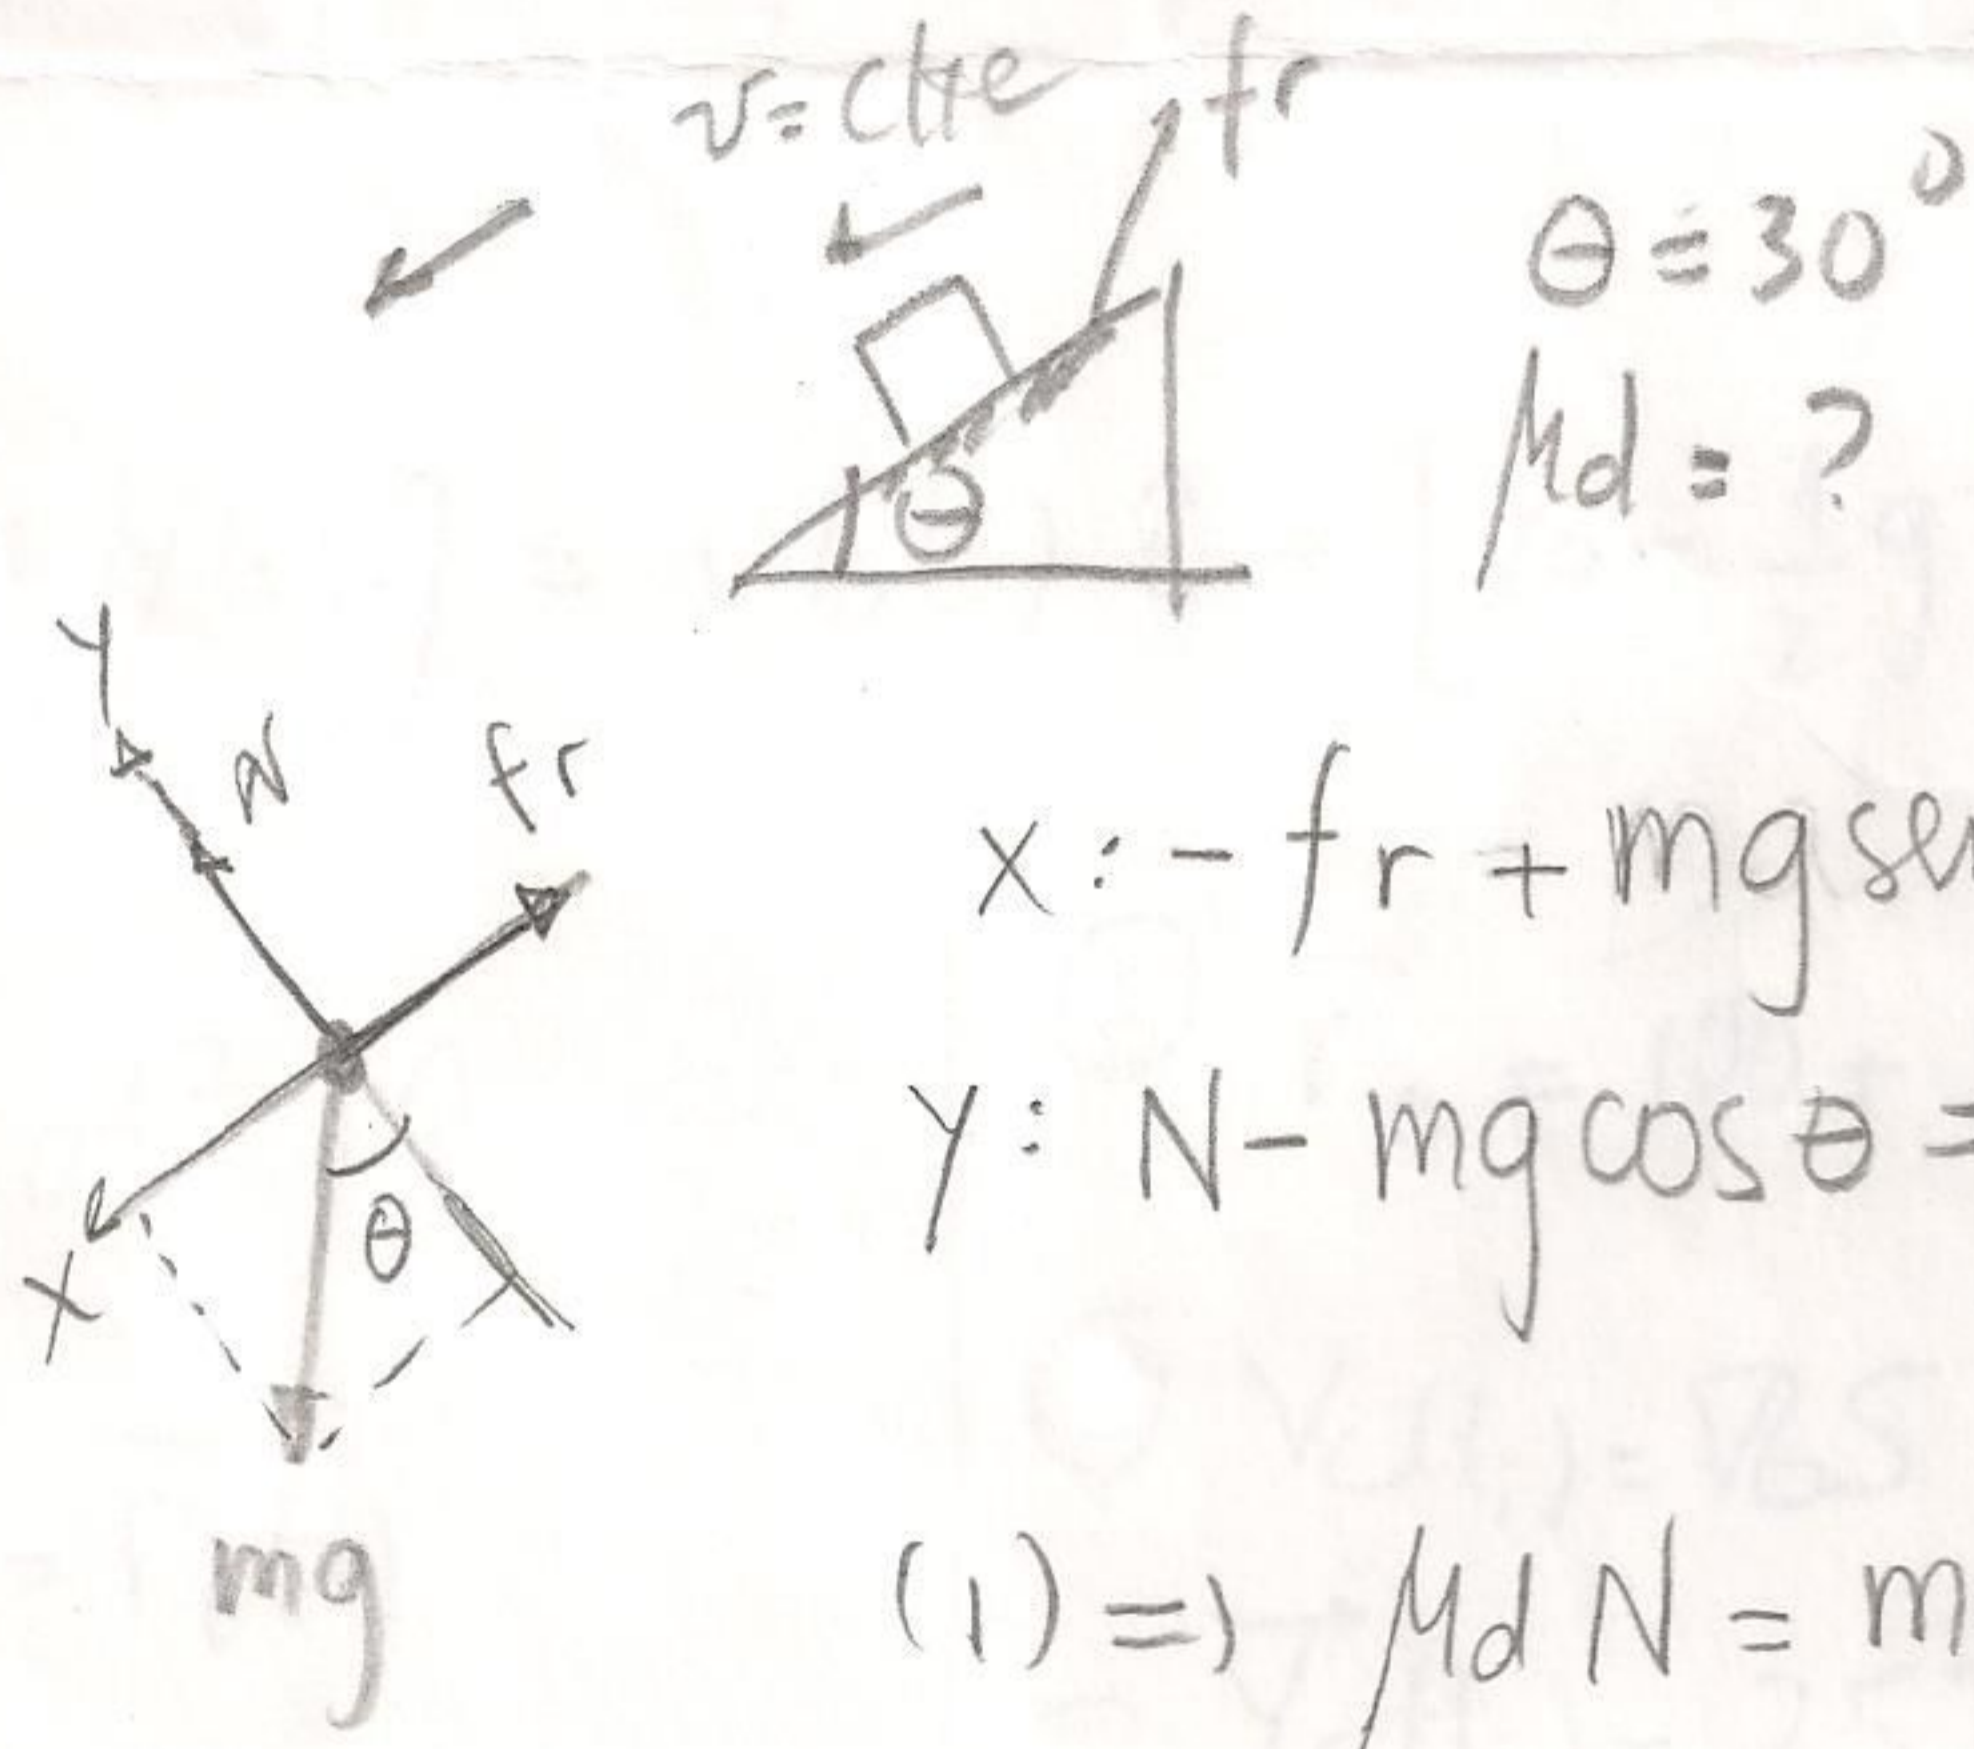 v = cte fr
θ = 30°
μd = ?
θ
Y
N
fr
X
θ
mg
X : - fr + mg sen
Y : N - mg cos θ =
(1) => μd N = m